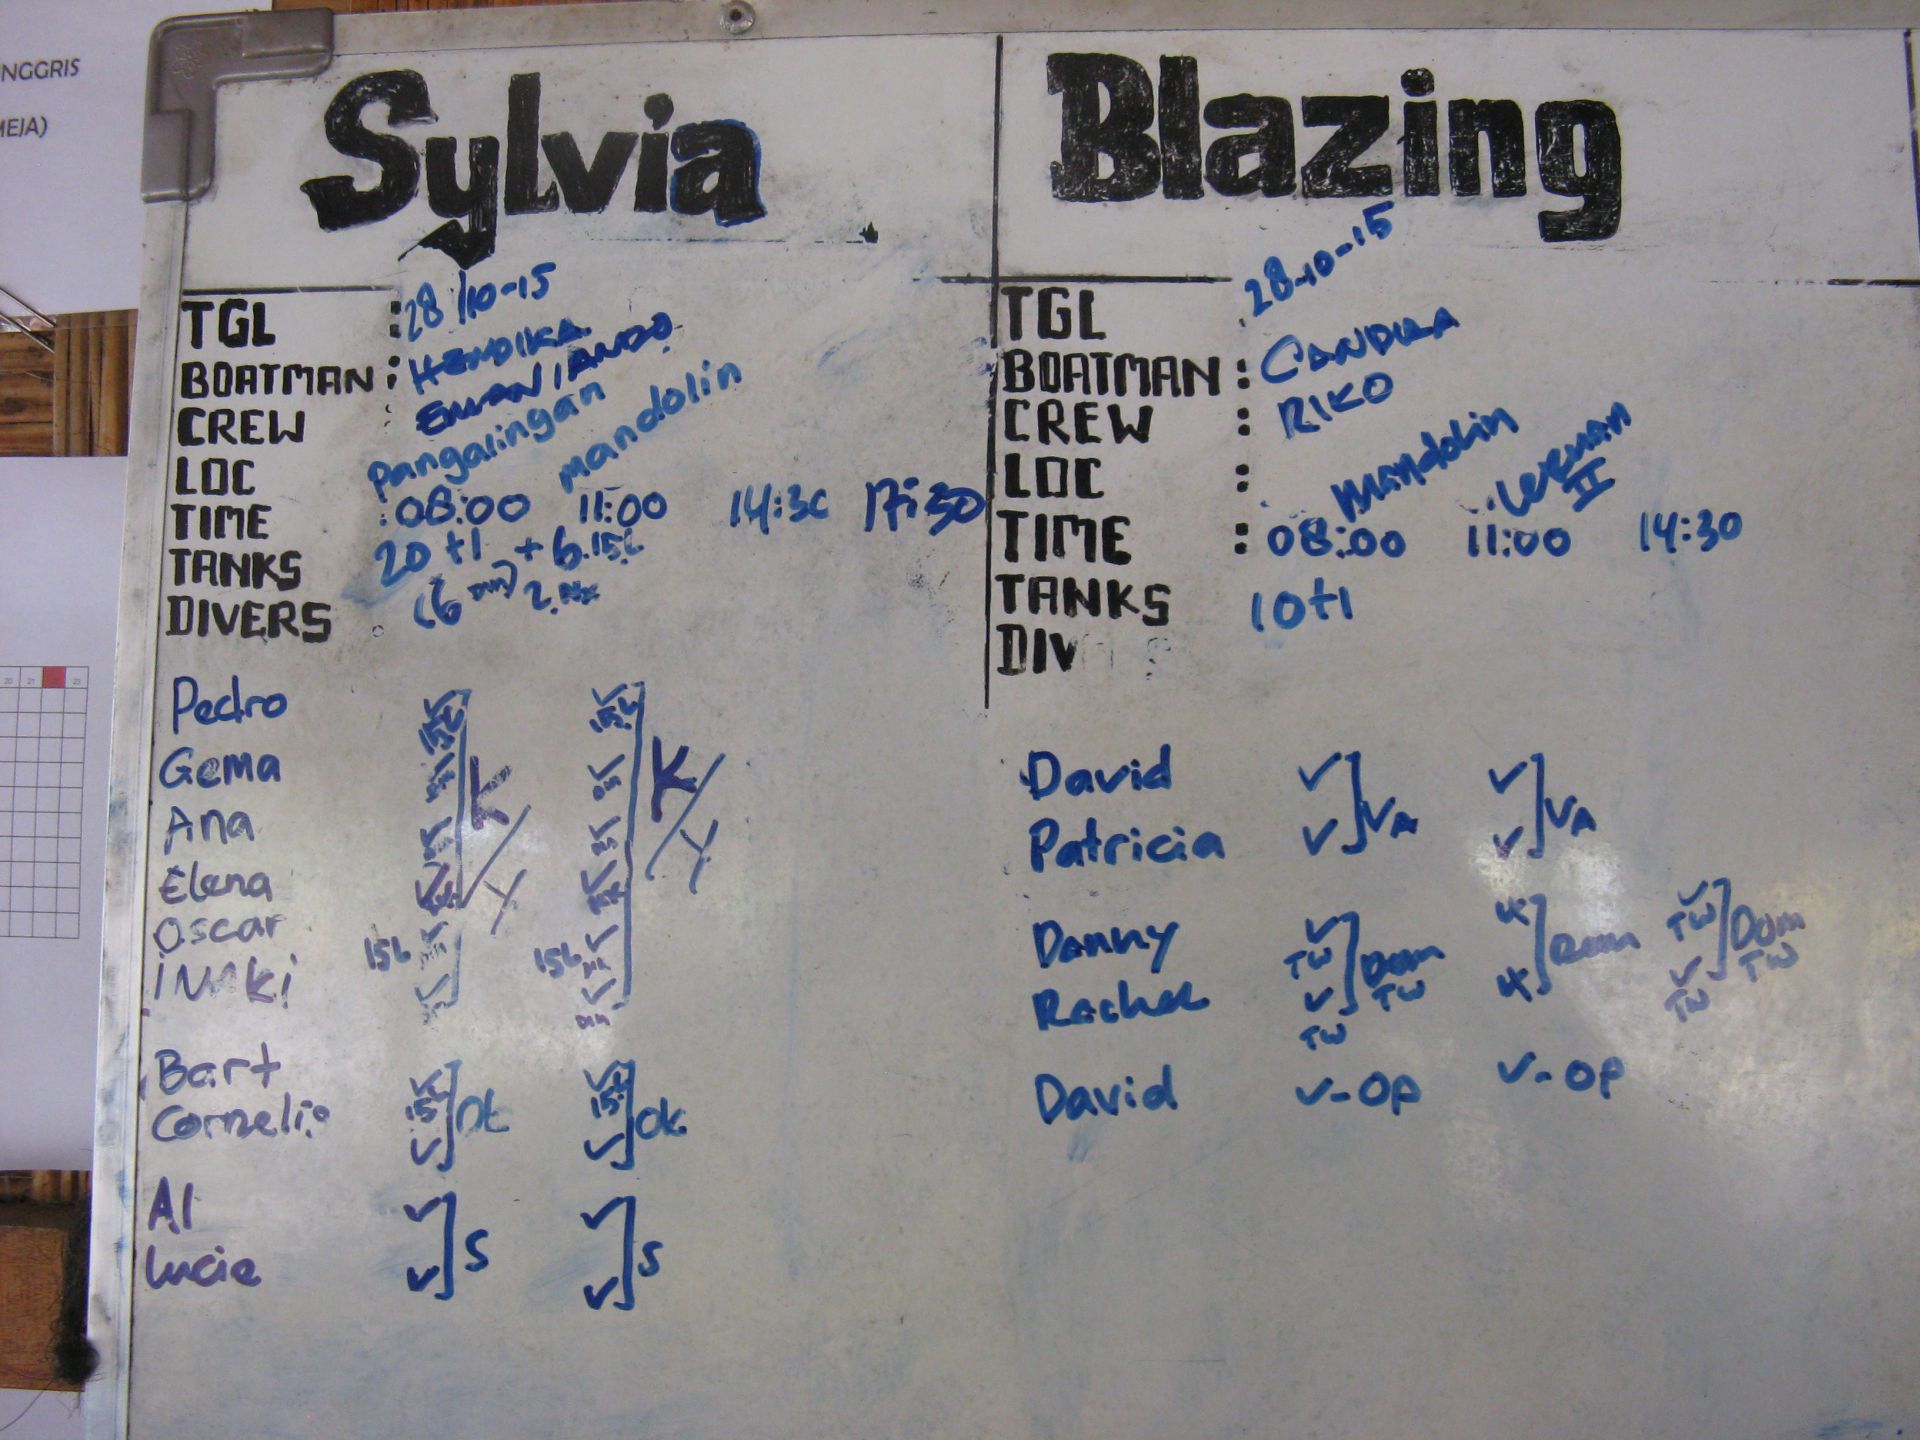 NGGRIS
MEJA)
20 21 23
Sylvia
TGL : 28/10-15
BOATMAN : HENDIKA
CREW
LOC Pangalingan mandolin
TIME : 08:00 11:00 14:30 17:30
TANKS 20+1 + 6.15L
DIVERS
Pedro 15L 15L
Gema K K
Ana
Elena Y Y
Oscar 15L 15L
iNaki
Bart 15L 15L
Cornelis Ok
Al
Lucie S S
Blazing
TGL 28-10-15
BOATMAN : CANDRA
CREW : RIKO
LOC : Mandolin Lekuan II
TIME : 08:00 11:00 14:30
TANKS 10+1
DIV
David
Patricia VA VA
Danny TW Dom TW TW Dom TW
Rachel TW TW
David V-OP V-OP